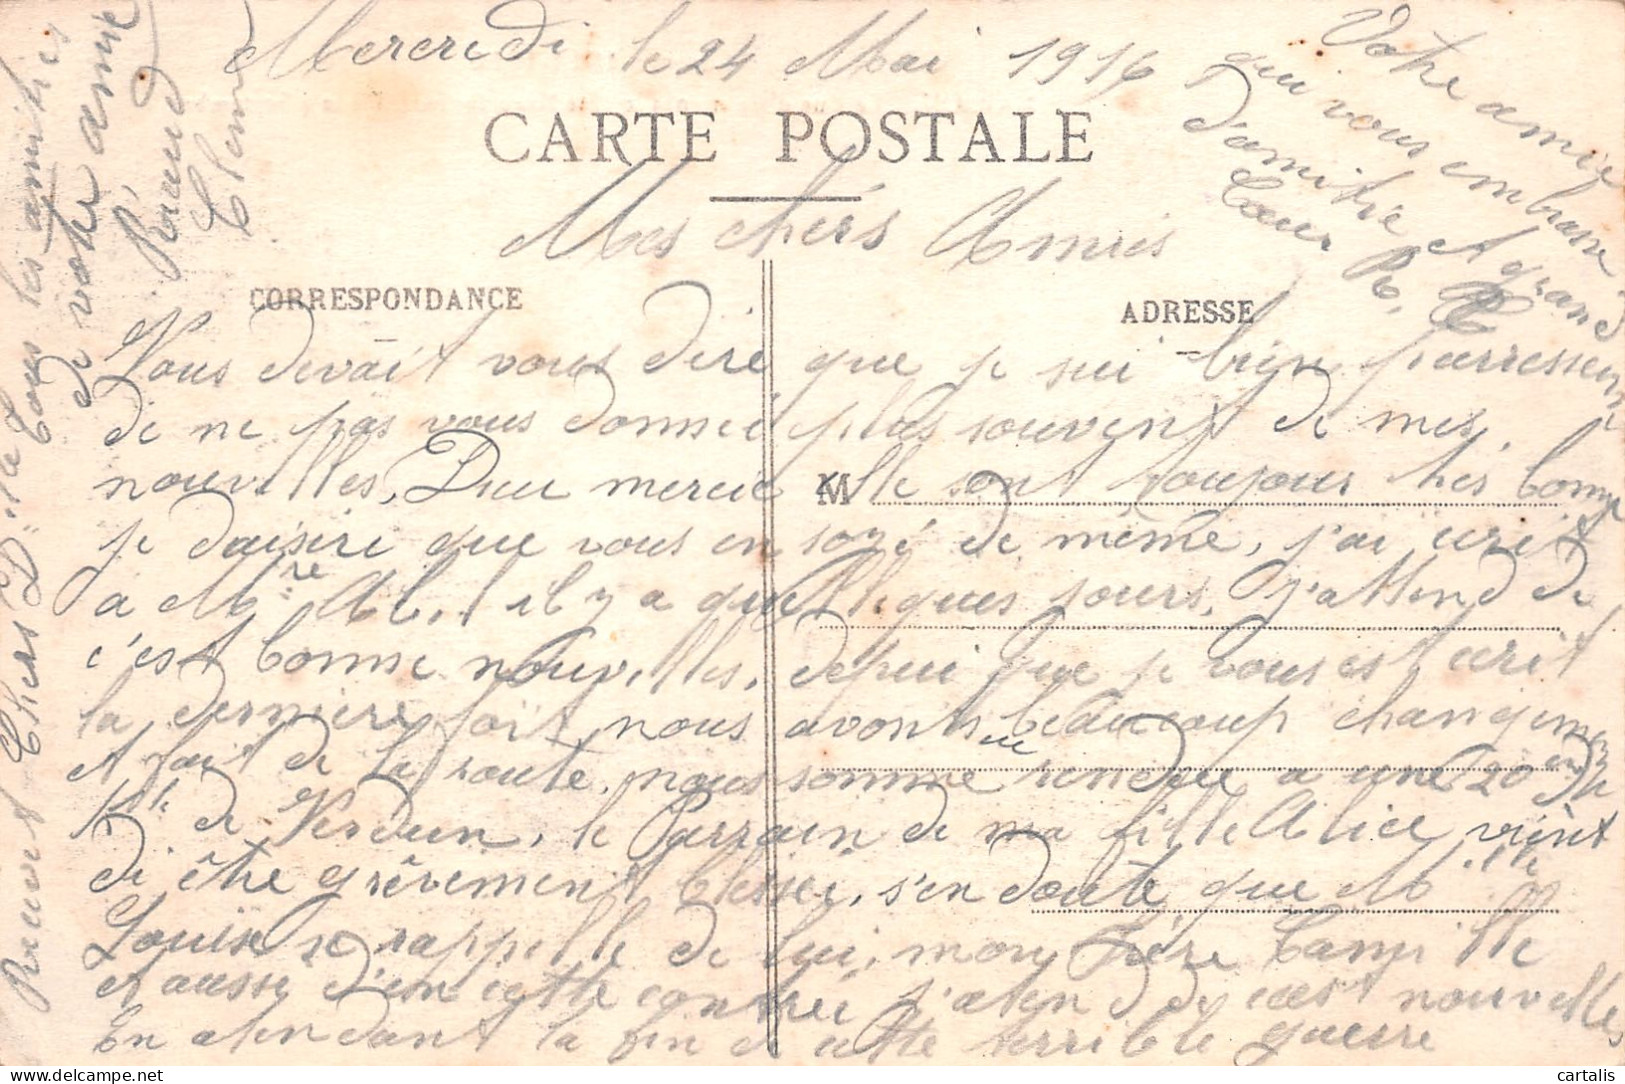 Mercredi le 24 Mai 1916
CARTE POSTALE
Mes chérs Amies
CORRESPONDANCE
ADRESSE
M
Vous devait vous dire que je sui bien parresseuse
de ne pas vous donneé plus souvent de mes
nouvelles, Dieu merci elle sont toujours trés bonne
je daisire que vous en soyé de même, j'ai ecrit
a Mre Ab. il y a quelleques jours, j'attend de
c'est bonne nouvelles, depui que je vous est ecrit
la derniere foit, nous avons beaucoup changement
et fait de la route, nous somme rendue a une 20 de
klt de Verdun, le Parrain de ma fille Alice vient
di être grêvement blesseé, s'en doute que Mlle
Louise se rappelle de lui, mon frère Camille
et aussi d'en cette contreé j'aten de cest nouvelles
En atendant la fin de cette terrible guerre
Votre amie
qui vous embrasse
d'amitié et grand
Cœur R. C
Recevez Chers Dlle tous les amities
de votre amie
Renaud
Clem
cartalis